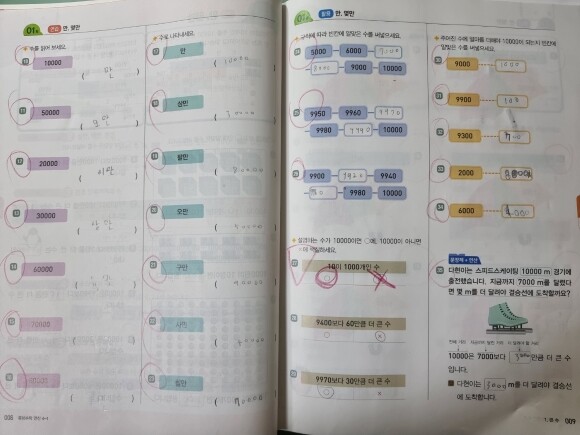 01
만, 몇만
수를 읽어 보세요.
10000
( 만 )
50000
( 오만 )
20000
( 이만 )
30000
( 삼만 )
60000
70000
수로 나타내세요.
만
( 10000 )
삼만
( 30000 )
팔만
( 80000 )
오만
구만
사만
칠만
( 70000 )
008
만, 몇만
규칙에 따라 빈칸에 알맞은 수를 써넣으세요.
5000 6000 7000
8000 9000 10000
9950 9960 9970
9980 9990 10000
9900 9920 9940
9980 10000
설명하는 수가 10000이면 ○에, 10000이 아니면
10이 1000개인 수
9400보다 60만큼 더 큰 수
9970보다 30만큼 더 큰 수
주어진 수에 얼마를 더해야 10000이 되는지 빈칸에
알맞은 수를 써넣으세요.
9000 1000
9900 100
9300 700
2000
6000
문장제 + 연산
다현이는 스피드스케이팅 10000 m 경기에
출전했습니다. 지금까지 7000 m를 달렸다
면 몇 m를 더 달려야 결승선에 도착할까요?
10000은 7000보다 3000만큼 더 큰 수
입니다.
다현이는 3000 m를 더 달려야 결승선
에 도착합니다.
009